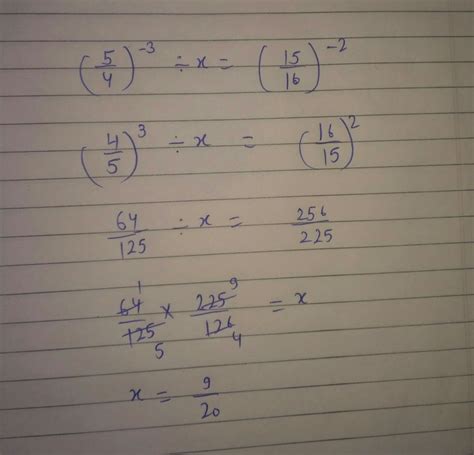 (5/4)^-3 ÷ x = (15/16)^-2
(4/5)^3 ÷ x = (16/15)^2
64/125 ÷ x = 256/225
1 9
64/125 × 225/126 = x
5 4
x = 9/20